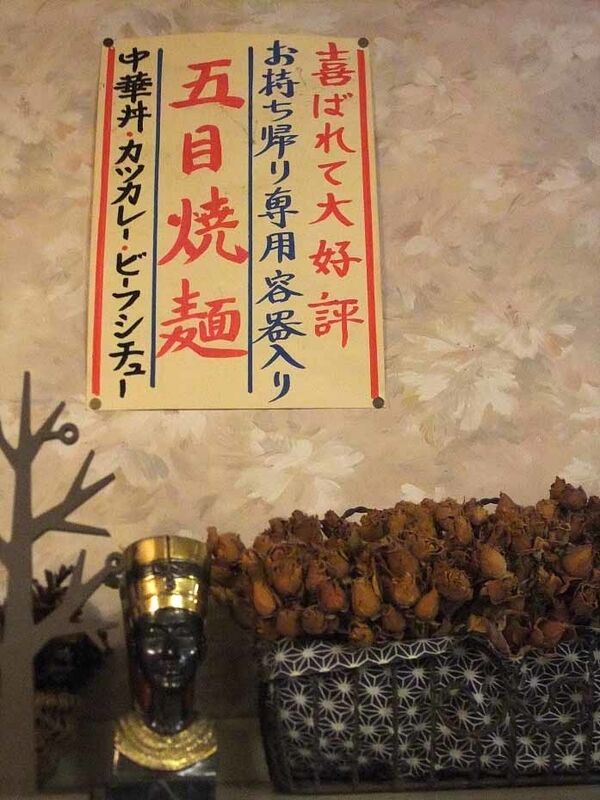 喜ばれて大好評
お持ち帰り専用容器入り
五目焼麺
中華丼・カツカレー・ビーフシチュー